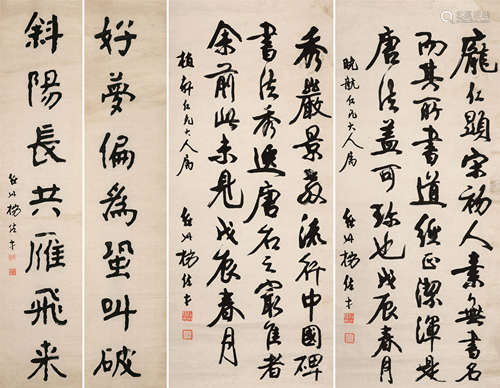 龐仁顯宋初人素無書名
而其所書道德正潔渾是
唐法蓋可珍也戊辰春月
曉航仁兄大人屬
楊
秀嚴景教流行中國碑
書法秀逸唐名之最佳者
余前此未見戊辰春月
植軒仁兄大人屬
楊
好夢偏為蛩叫破
斜陽長共雁飛來
楊